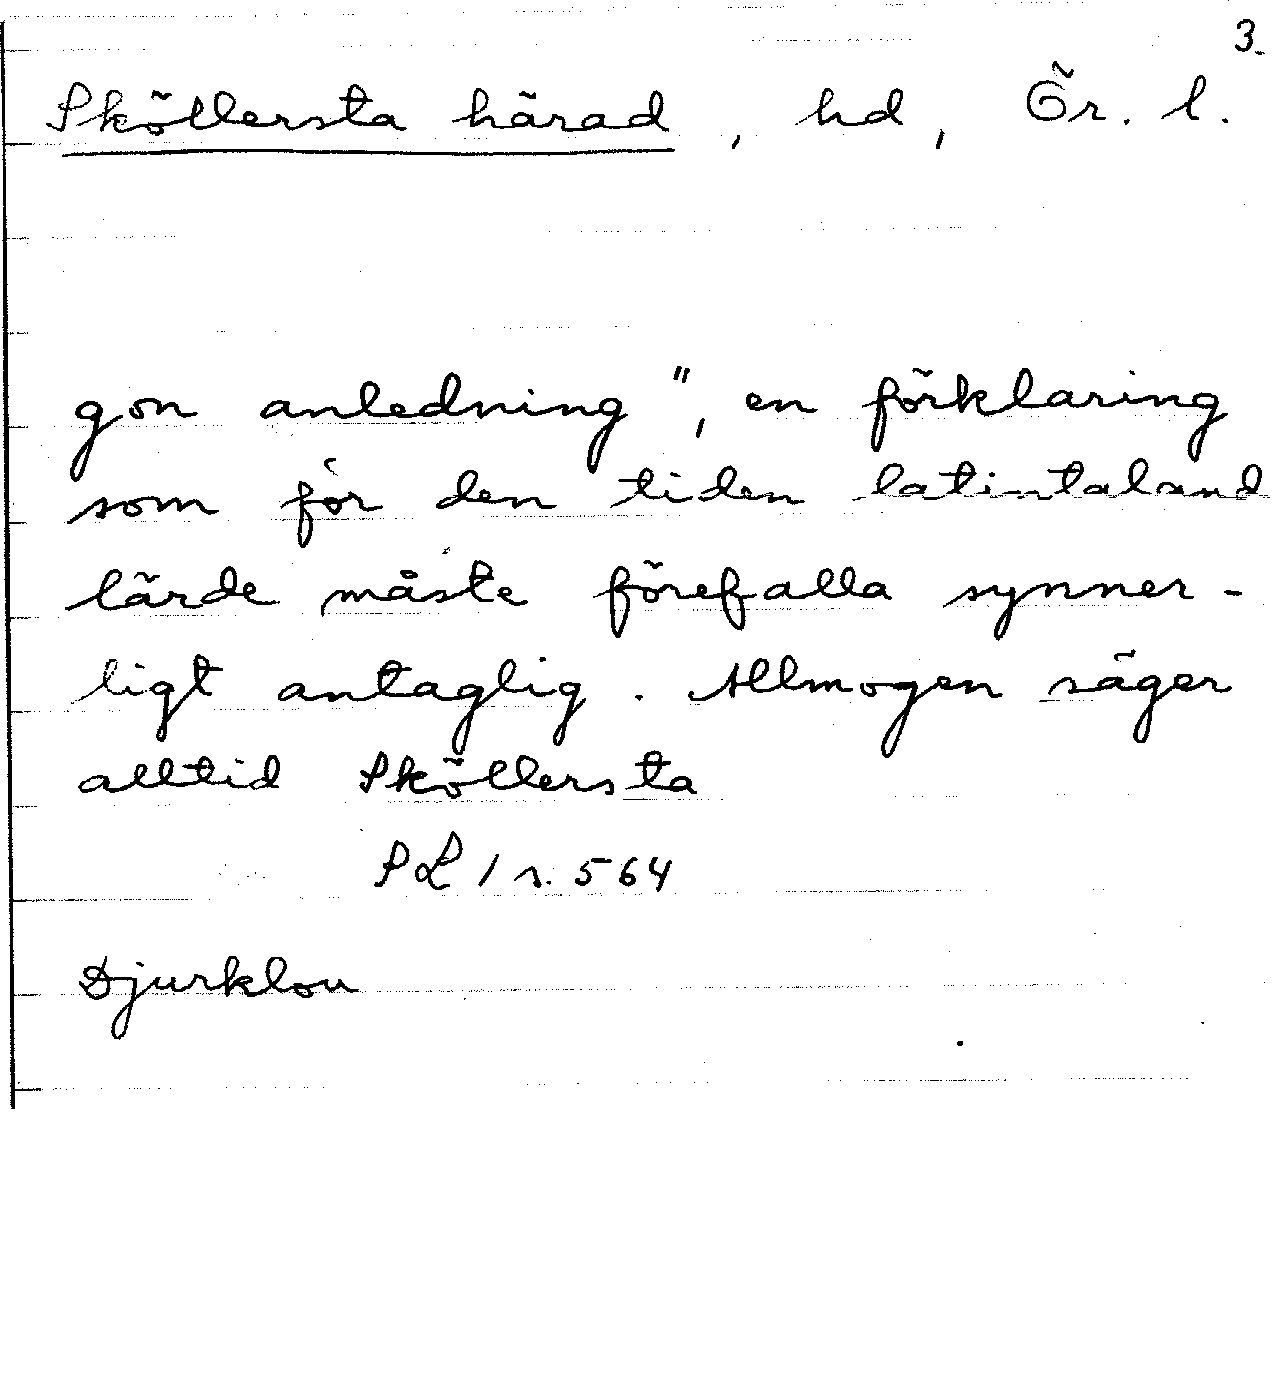 3.
Sköllersta härad, hd, Ör. l.
gon anledning", en förklaring
som för den tiden latintaland
lärde måste förefalla synner-
ligt antaglig. Allmogen säger
alltid Sköllersta
SL 1 s. 564
Djurklou